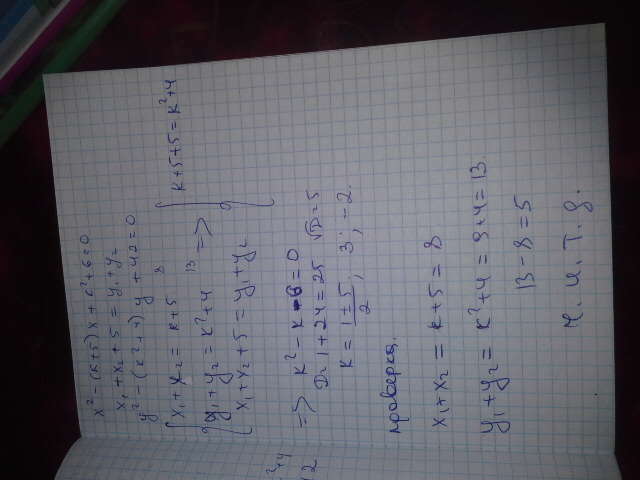 x² - (k+5)x + k² + 6 = 0
x₁ + x₂ + 5 = y₁ + y₂
y² - (k² + 4)y + 42 = 0
x₁ + x₂ = k + 5 8
y₁ + y₂ = k² + 4 13 => k + 5 + 5 = k² + 4
x₁ + x₂ + 5 = y₁ + y₂
=> k² - k - 6 = 0
D = 1 + 24 = 25 √D = 5
k = 1 ± 5 / 2 , 3 ; -2.
проверка.
x₁ + x₂ = k + 5 = 8
y₁ + y₂ = k² + 4 = 9 + 4 = 13
13 - 8 = 5
ч. и. т. д.